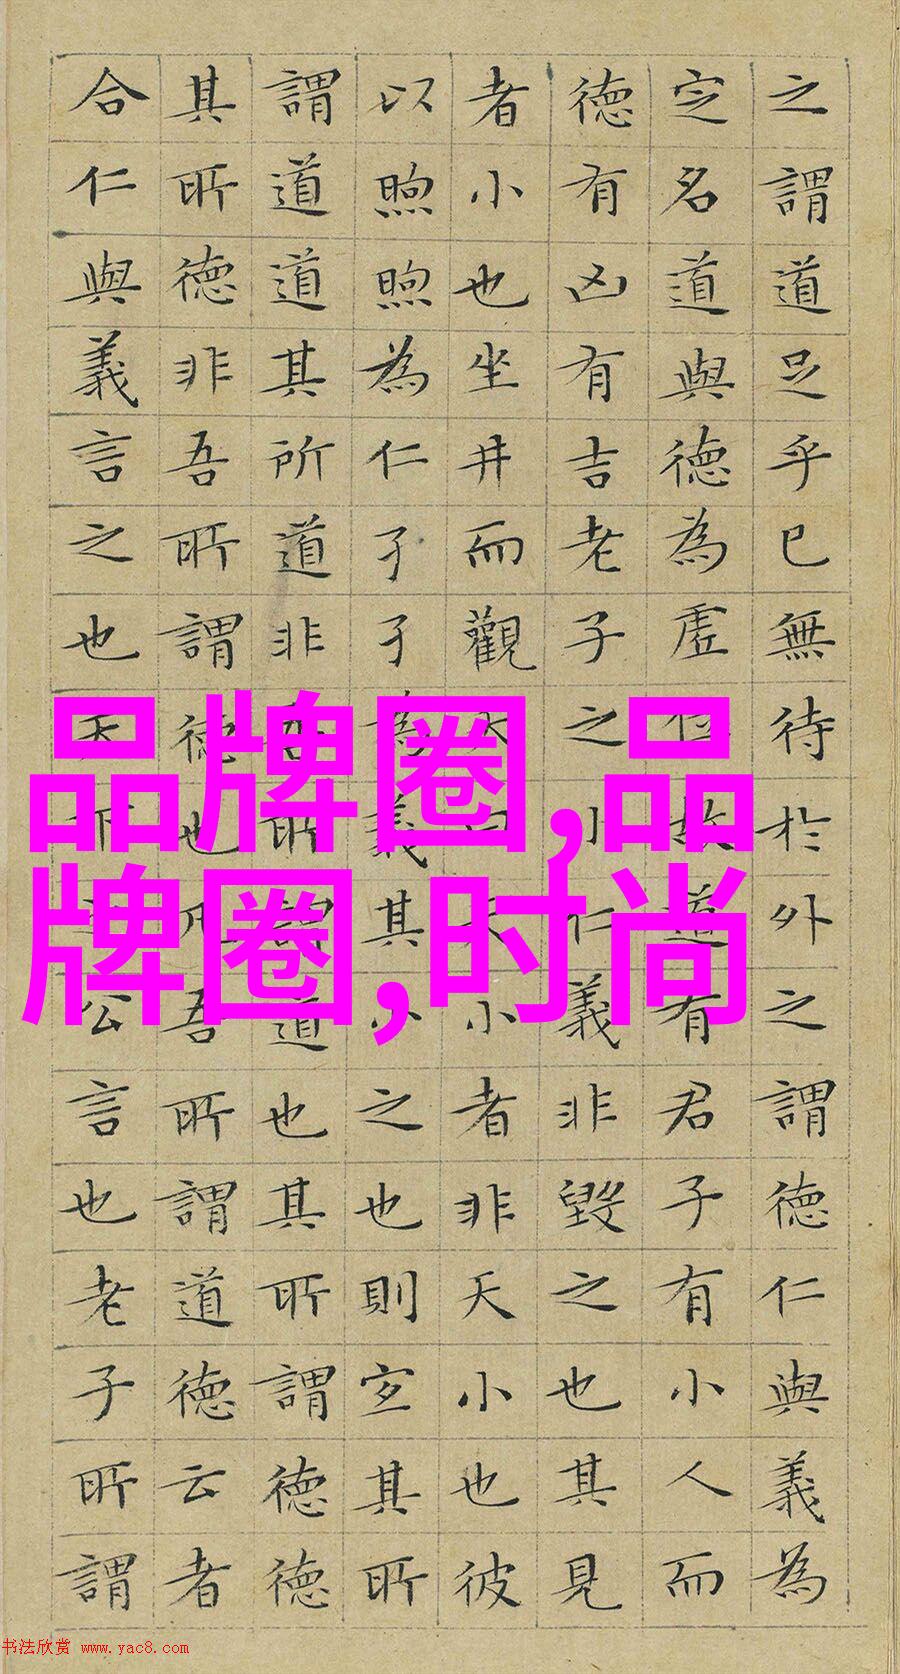 之謂道足乎已無待於外之謂德仁與義為
定名道與德為虛位故道有君子有小人而
德有凶有吉老子之小仁義非毀之也其見
者小也坐井而觀天曰天小者非天小也彼
以煦煦為仁孑孑為義其小之也則宜其所
謂道道其所道非吾所謂道也其所謂德德
其所德非吾所謂德也凡吾所謂道德云者
合仁與義言之也天下之公言也老子所謂
品牌圈,品
牌圈,时尚
书法欣赏 www.yac8.com